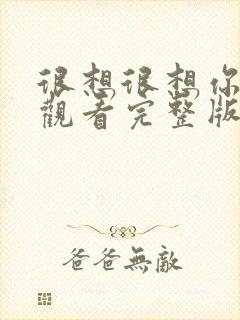 很想很想你
觀看完整版
爸爸無敵